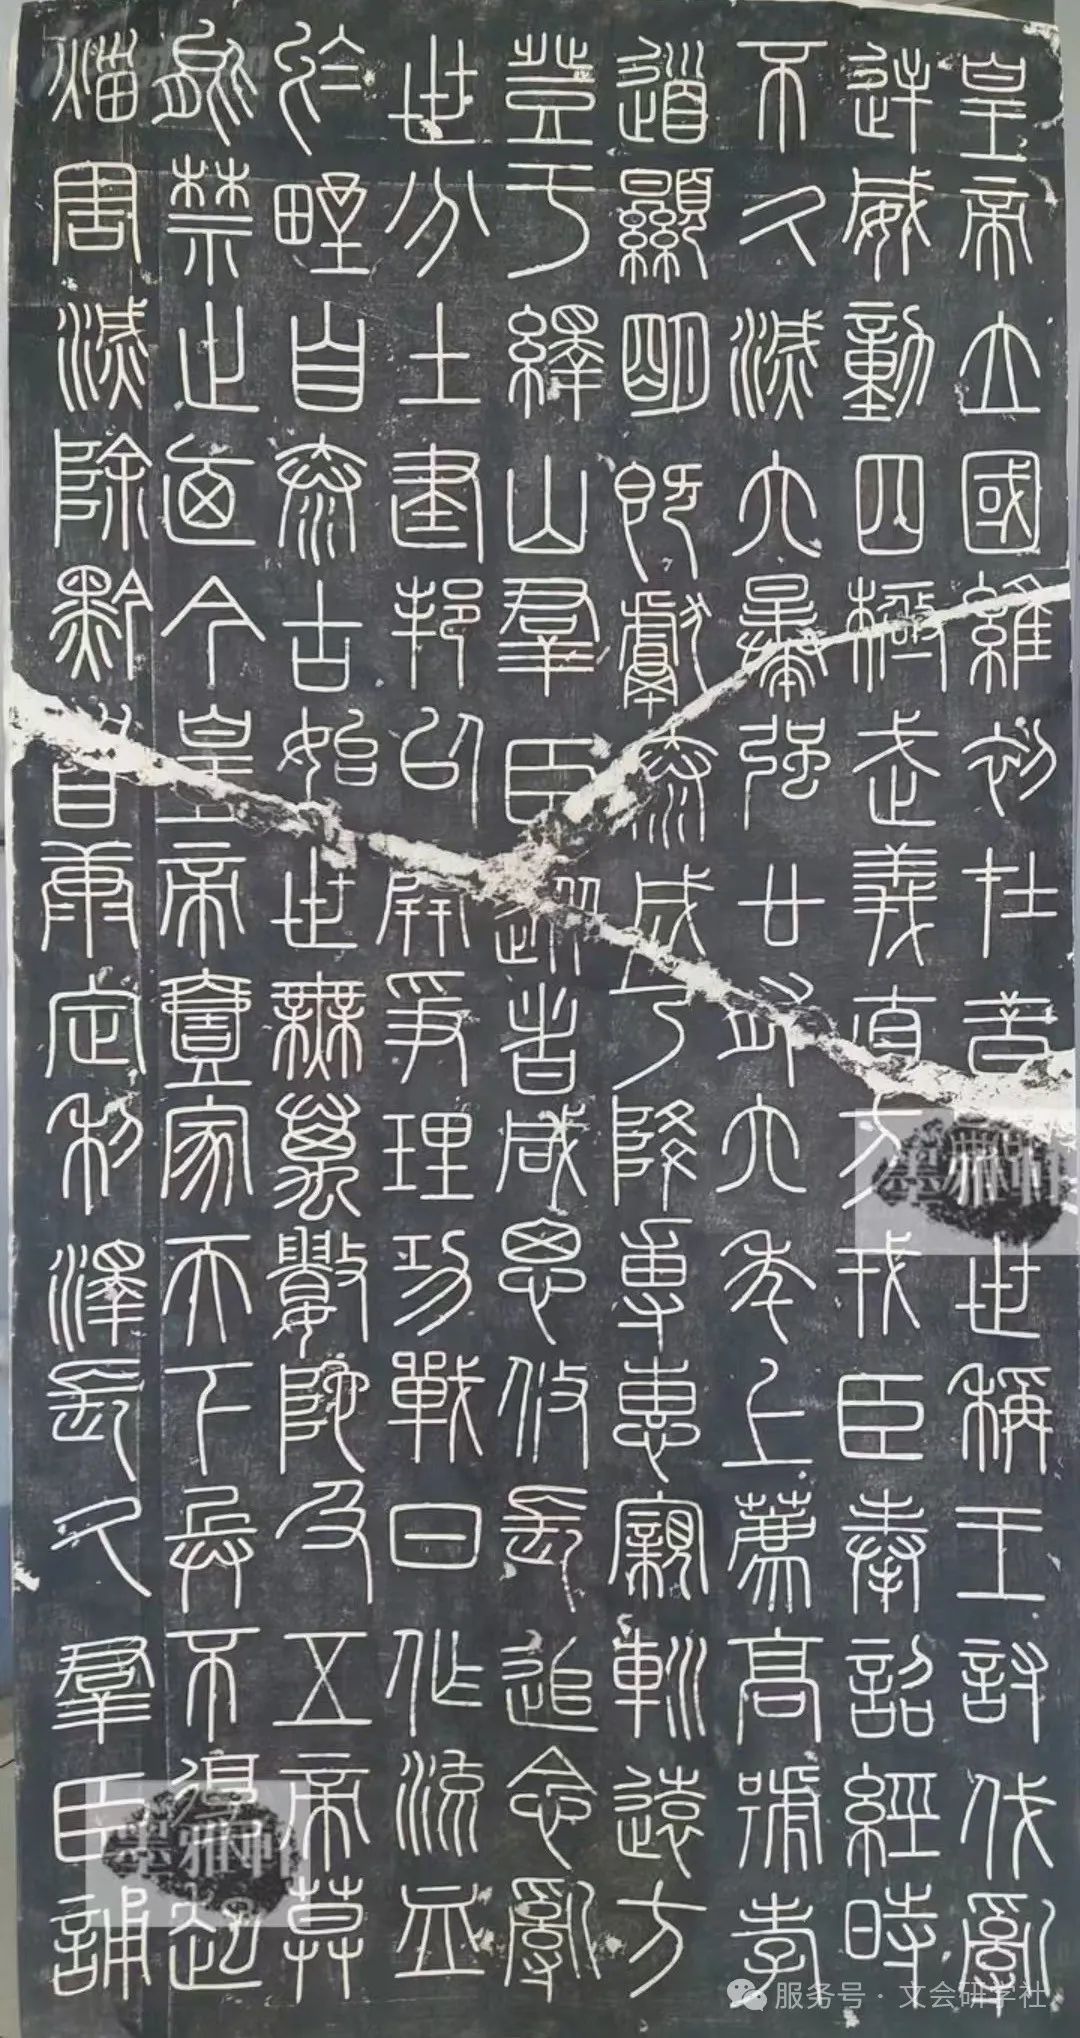 皇帝立國維初在昔嗣世稱王討伐亂
逆威動四極武義直方戎臣奉詔經時
不久滅六暴強廿有六年上薦高號孝
道顯明既獻泰成乃降專惠寴巡遠方
登于繹山羣臣從者咸思攸長追念亂
世分土建邦以開爭理功戰日作流血
於野自泰古始世無萬數陀及五帝莫
能禁止迺今皇帝壹家天下兵不復起
災害滅除黔首康定利澤長久羣臣誦
墨雅軒
墨雅軒
服务号 · 文会研学社